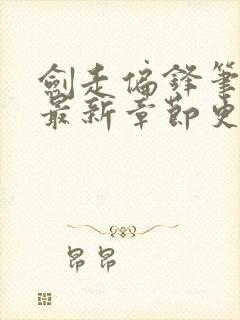 劍走偏鋒筆
最新章節史
昂昂